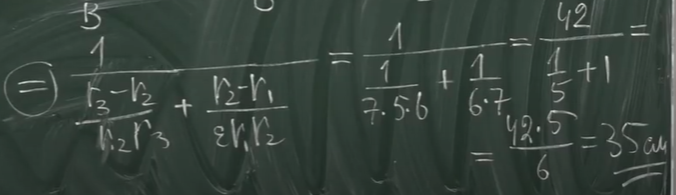 B
⊜ 1/((r₃-r₂)/(r₂r₃) + (r₂-r₁)/(εr₁r₂)) = 1/(1/(7·5·6) + 1/(6·7)) = 42/(1/5 + 1) =
= 42·5/6 = 35см